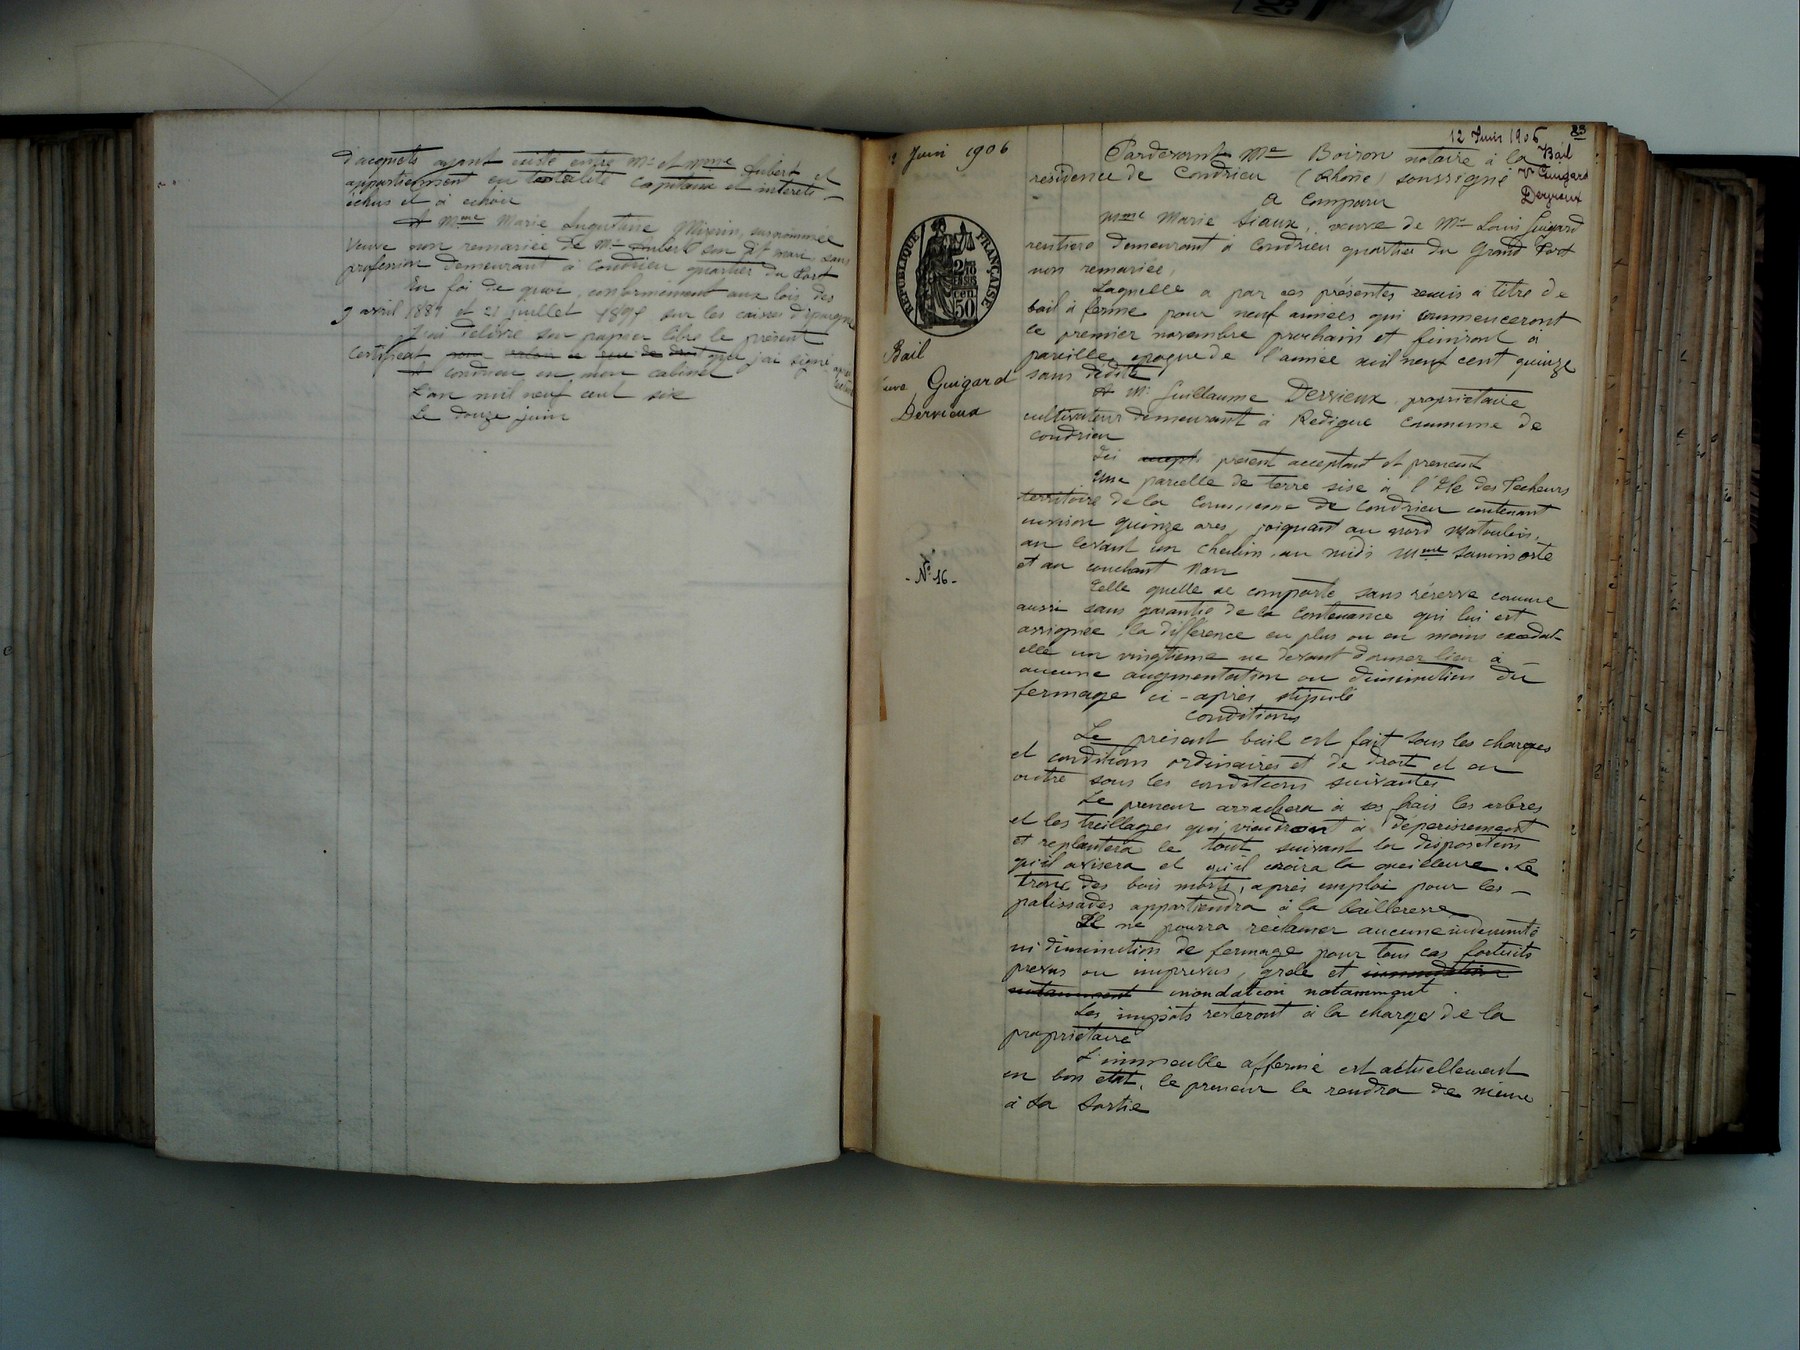 d'acquêts ayant existé entre Mr et Mme Imbert et
appartiennent en totalité capitaux et intérêts
échus et à échoir
A Mme Marie Augustine Mivrin, susnommée
Veuve non remariée de Mr Imbert son dft mari, sans
profession demeurant à Condrieu quartier du Port
En foi de quoi, conformément aux lois des
9 avril 1881 et 21 juillet 1895 sur les caisses d'épargne
J'ai délivré sur papier libre le présent
Certificat que j'ai signé
A Condrieu en mon cabinet
L'an mil neuf cent six
Le douze juin
12 Juin 1906
83
Bail
Vve Guigard
Dervieux
Juin 1906
RÉPUBLIQUE FRANÇAISE
50
Bail
Guigard
Dervieux
- No 16 -
Pardevant Me Boiron notaire à la
résidence de Condrieu (Rhône) soussigné
A Comparu
Mme Marie Liaux, veuve de Mr Louis Guigard
rentière demeurant à Condrieu quartier du Grand Port
non remariée,
Laquelle a par ces présentes remis à titre de
bail à ferme pour neuf années qui commenceront
le premier novembre prochain et finiront à
pareille époque de l'année mil neuf cent quinze
sans dédite
A Mr Guillaume Dervieux propriétaire
cultivateur demeurant à Rédigue commune de
Condrieu
Ici accept présent acceptant et preneur
Une parcelle de terre sise à l'Ile des Pêcheurs
territoire de la Commune de Condrieu contenant
environ quinze ares, joignant au nord
au levant un chemin, au midi Mme
et au couchant
Telle quelle se comporte sans réserve comme
aussi sans garantie de la contenance qui lui est
assignée, la différence en plus ou en moins excédat-
elle un vingtième ne devant donner lieu à -
aucune augmentation ou diminution du
fermage ci-après stipulé
Conditions
Le présent bail est fait sous les charges
et conditions ordinaires et de droit et en
outre sous les conditions suivantes
Le preneur arrachera à ses frais les arbres
et les treillages qui viendront à dépérissement
et replantera le tout suivant la disposition
qu'il avisera et qu'il croira la meilleure. Le
tronc des bois morts, après emploi pour les -
palissades appartiendra à la bailleresse
Il ne pourra réclamer aucune indemnité
ni diminution de fermage pour tous cas fortuits
prévus ou imprévus, grêle et innondation
notamment inondation notamment.
Les impôts resteront à la charge de la
propriétaire
L'immeuble affermé est actuellement
en bon état, le preneur le rendra de même
à sa sortie